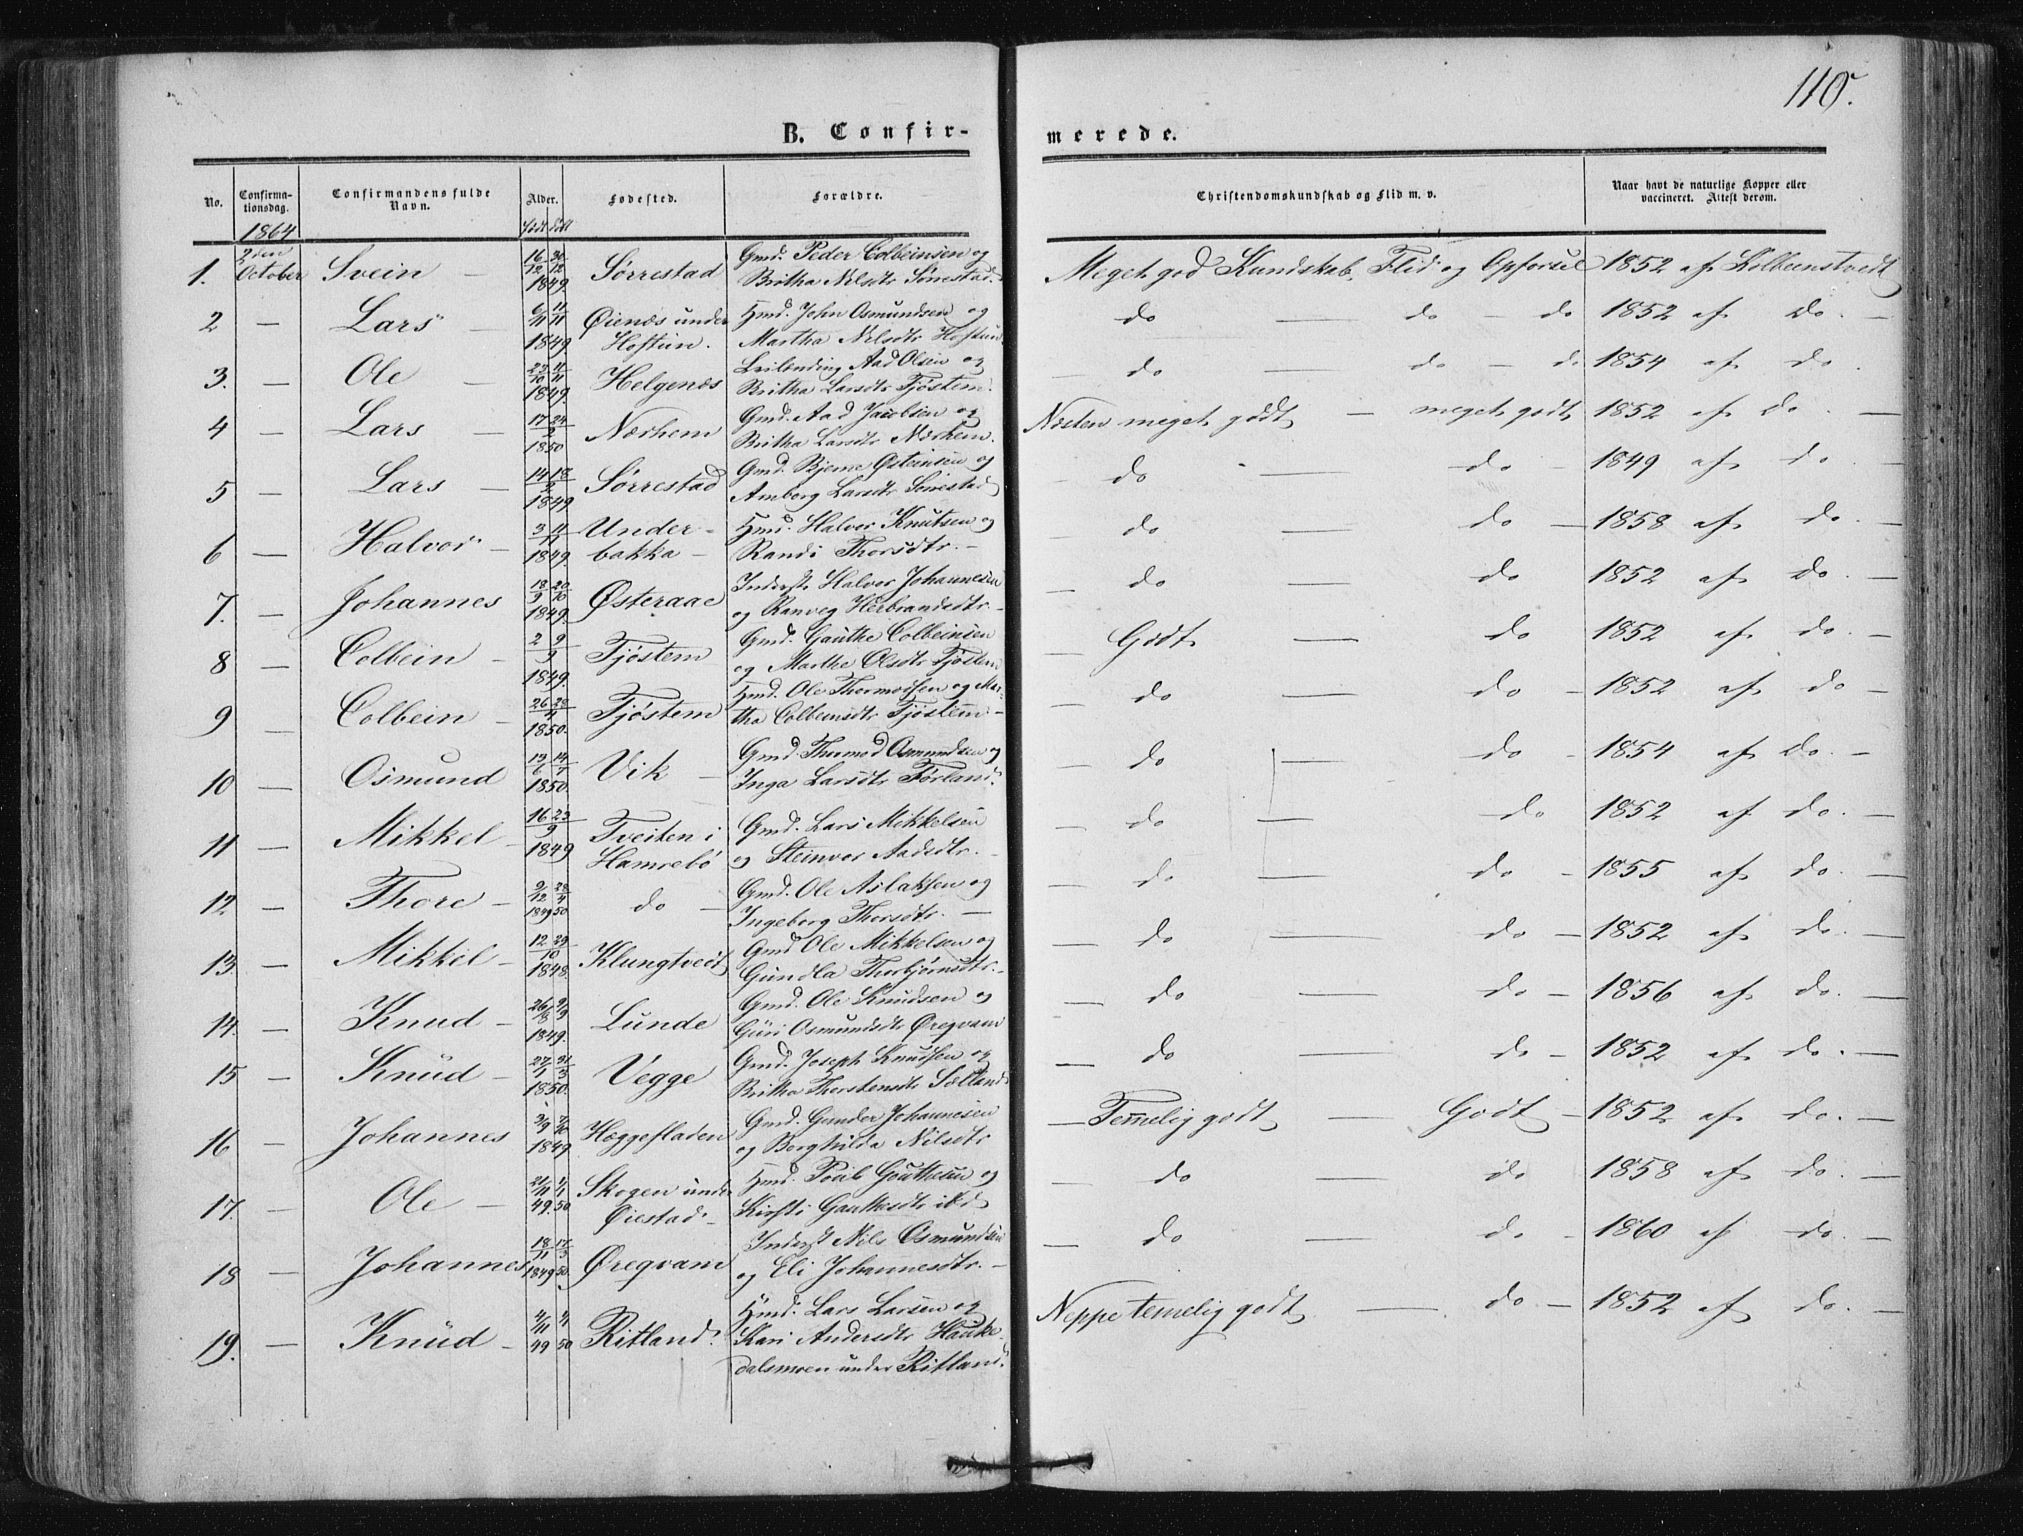 110.
B. Confir-
merede.
No.
Confirma-
tionsdag.
Confirmandens fulde
Navn.
Alder.
Fødested.
Forældre.
Christendomskundskab og Flid m. v.
Naar havt de naturlige Kopper eller
vaccineret. Attest derom.
1864
født døbt
1. 2den October Svein – 16/12 30/12 1849. Sørrestad Gmd. Peder Colbeinsen og
Britha Nilsdtr Sørrestad. Meget god Kundskab, Flid og Opførsel 1852 af Kolbeinstvedt
2 – Lars 6/11 11/11 1849. Øienæs under Hoftun. Hmd. John Osmundsen og
Martha Nilsdtr Hoftun do – do – do 1852 af do. –
3. – Ole – 23/10 11/11 1849. Helgenæs Leilending Aad Olsen og
Britha Larsdtr Tjøstem. – do – do – do 1854 af do
4 – Lars – 17 24/2 1850 Nærhem Gmd. Aad Jacobsen og
Britha Larsdtr Nærhem. Næsten meget godt – meget godt 1852 af do. –
5 – Lars – 14 18/2 1849 Sørrestad Gmd. Bjerne Østeinsen og
Amberg Larsdtr Sørrestad – do – do – 1849 af do. –
6 – Halvor – 3 11/11 1849. Under- bakka – Hmd. Halvor Knutsen og
Randi Thorsdtr. – – do – do – 1858 af do. –
7. – Johannes 13/9 20/10 1849. Østeraae Inderst Halvor Johannesen
og Ranveg Herbrandsdtr. – – do – do 1852 af do. –
8 – Colbein – 2 9/9 1849. Tjøstem Gmd. Gauthe Colbeinsen
og Marthe Olsdtr Tjøstem – Godt – do 1852 af do. –
9 – Colbein – 26 28/4 1850. Tjøstem Hmd. Ole Thormodsen og Mar-
tha Colbeinsdtr Tjøstem – – do – do – 1852 af do –
10 – Osmund 13/6 14/7 1850 Vik – Gmd. Thormod Osmundsen og
Inga Larsdtr Førland. do – do – 1854 af do. –
11 – Mikkel – 16 23/9 1849 Tveiten i Hamrebø Gmd. Lars Mikkelsen
og Steinvor Aadsdtr. – – do – do 1852 af do. –
12. – Thore – 9/12 28/4 1849 50 do – Gmd. Ole Aslaksen og
Ingeborg Thorsdtr. – – do – do – 1855 af do. –
13. – Mikkel – 12 29/10 1848. Klungtvedt Gmd Ole Mikkelsen og
Gundla Thorbjørnsdtr. – – do – do – 1852 af do. –
14. – Knud – 26/8 9/9 1849. Lunde Gmd. Ole Knudsen og
Guri Osmundsdtr Øregvam – do – do – 1856 af do. –
15 – Knud – 27/1 31/3 1850. Vegge Gmd. Joseph Knudsen og
Britha Thorstensdtr Sætland – do – do – 1852 af do. –
16 – Johannes 3/9 7/10 1849 Hæggefladen Gmd. Gunder Johannesen
og Berghilda Nilsdtr – Temelig godt – Godt – 1852 af do. –
17. – Ole – 21/11 1/1 49. 50 Skogen under Øiestad. Hmd. Poul Gauthesen og
Kirsti Gauthesdtr ibd – do – do 1858 af do. –
18 – Johannes 18/11 17/3 1849 50. Øregvam Inderst Nils Osmundsen
og Eli Johannesdtr. – – do – do – 1860 af do. –
19. – Knud – 4/11 49 50 Ritland. Hmd. Lars Larsen og
Kari Andersdtr Hauke-
dalsmoen under Ritland. Neppe temelig godt – do – 1852 af do. –